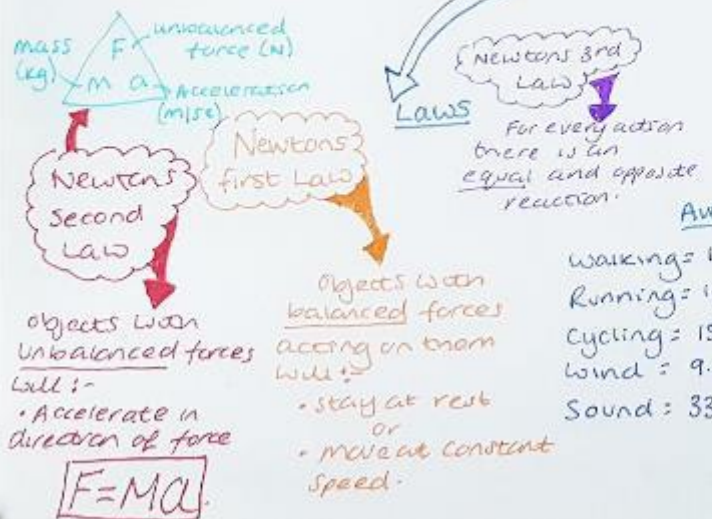 mass
(kg)
F
m a
unbalanced
force (N)
Acceleration
(m/s
Newtons
Second
Law
objects with
unbalanced forces
will :-
• Accelerate in
direction of force
F=Ma
Newtons
first Law
objects with
balanced forces
acting on them
will :-
• stay at rest
or
• move at constant
speed.
Laws
Newtons 3rd
Law
For every action
there is an
equal and opposite
reaction.
Walking =
Running =
Cycling = 15
Wind = 9.
Sound = 33